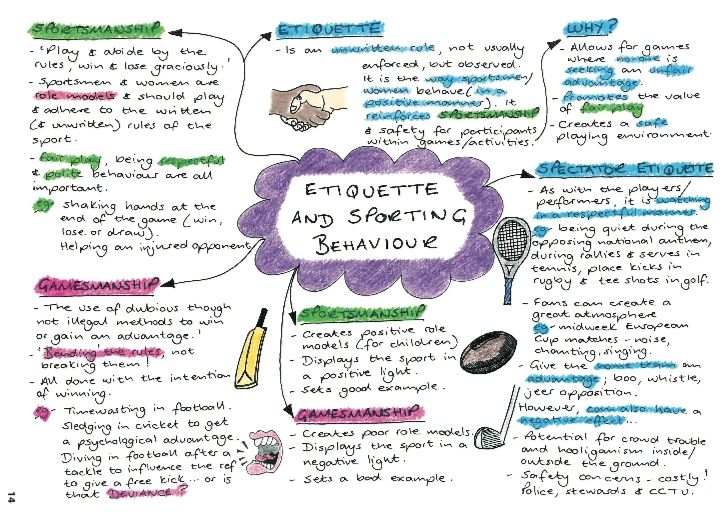 SPORTSMANSHIP
- 'Play & abide by the
rules, win & lose graciously.'
- Sportsmen & women are
role models & should play
& adhere to the written
(& unwritten) rules of the
sport.
- Fair play, being respectful
& polite behaviour are all
important.
eg shaking hands at the
end of the game (win,
lose or draw).
Helping an injured opponent
ETIQUETTE
- Is an unwritten rule, not usually
enforced, but observed.
It is the way sportsmen/
women behave (in a
positive manner). It
reinforces SPORTSMANSHIP
& safety for participants
within games/activities.
WHY?
- Allows for games
where no-one is
seeking an unfair
advantage.
- Promotes the value
of fair play
- Creates a safe
playing environment.
ETIQUETTE
AND SPORTING
BEHAVIOUR
SPECTATOR ETIQUETTE
- As with the players/
performers, it is watching
in a respectful manner.
eg- being quiet during the
opposing national anthem,
during rallies & serves in
tennis, place kicks in
rugby & tee shots in golf.
- Fans can create a
great atmosphere
eg- midweek European
Cup matches - noise,
chanting, singing.
- Give the home team an
advantage; boo, whistle,
jeer opposition.
However, can also have a
negative effect...
- Potential for crowd trouble
and hooliganism inside/
outside the ground.
- Safety concerns - costly!
Police, stewards & CCTV.
GAMESMANSHIP
- The use of dubious though
not illegal methods to win
or gain an advantage.'
- 'Bending' the rules, not
breaking them!
- All done with the intention
of winning.
eg- Timewasting in football.
Sledging in cricket to get
a psychological advantage.
Diving in football after a
tackle to influence the ref
to give a free kick... or is
that DEVIANCE?
SPORTSMANSHIP
- Creates positive role
models (for children)
- Displays the sport in
a positive light.
- Sets good example.
GAMESMANSHIP
- Creates poor role models.
- Displays the sport in a
negative light.
- Sets a bad example.
14